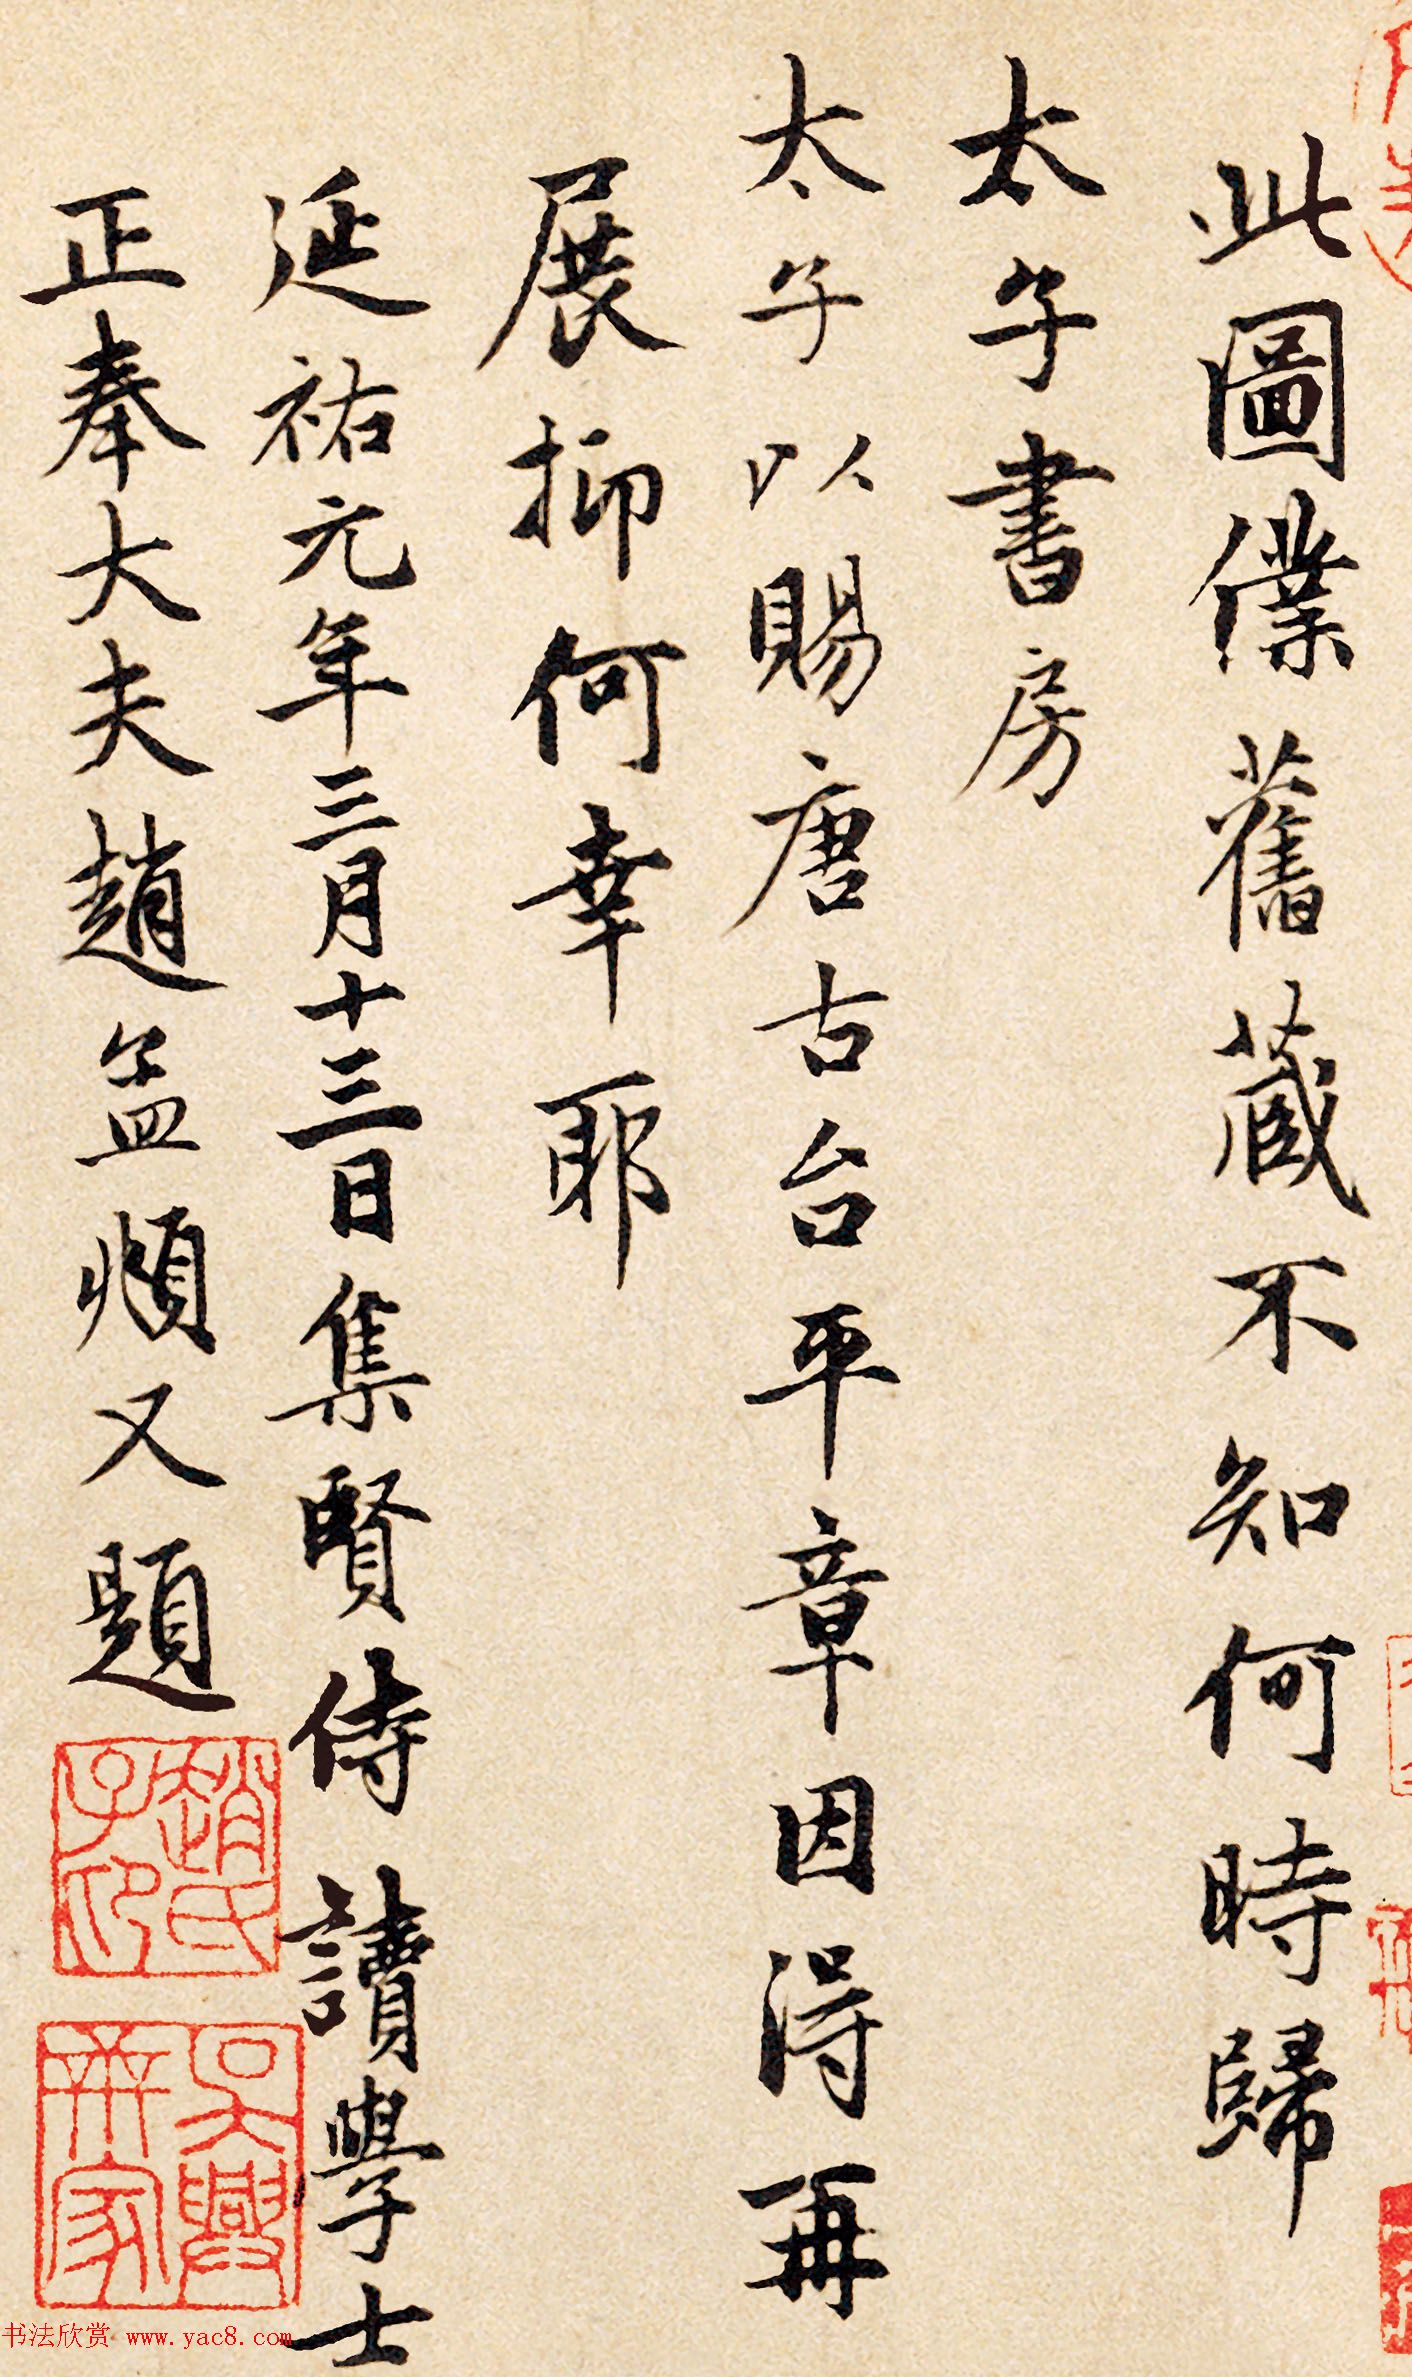 此圖僕舊藏不知何時歸
太子書房
太子以賜唐古台平章因得再
展抑何幸耶
延祐元年三月十三日集賢侍讀學士
正奉大夫趙孟頫又題
趙氏子印
书法欣赏 www.yac8.com